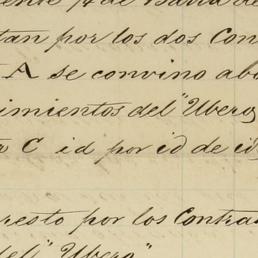 ente 14 de Barra de
tan por los dos Con
A se convino abo
imientos del "Ubero
C id por id de id
resto por los Contra
del "Ubero"